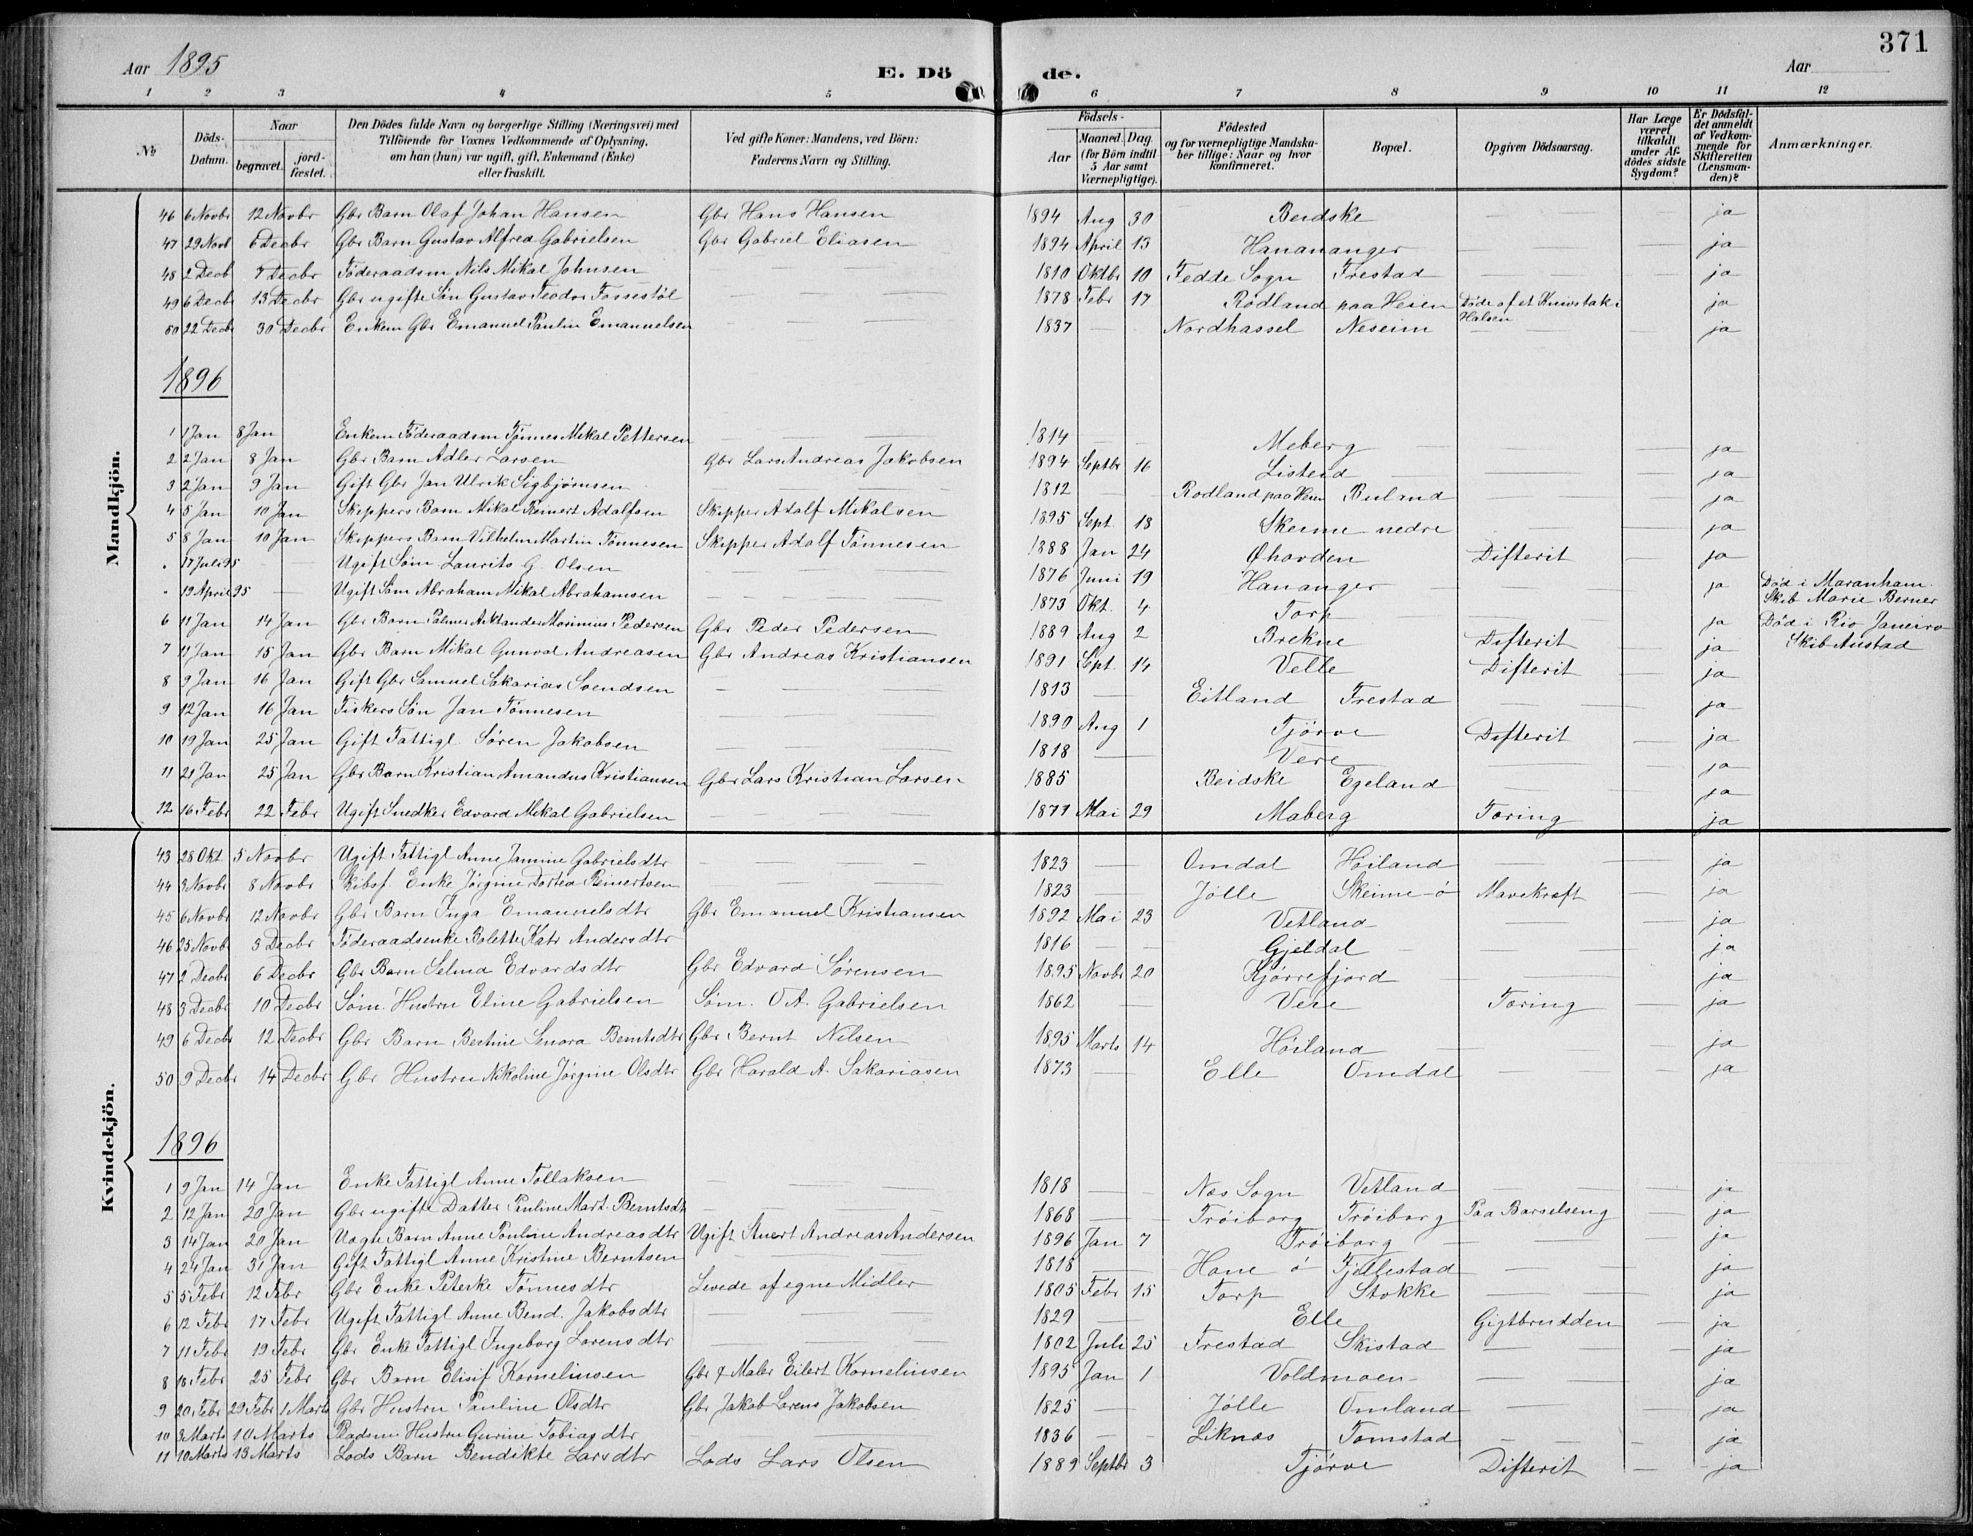 Aar 1895
E. Dö
de.
Aar
371
1 2 3 4 5 6 7 8 9 10 11 12
№
Döds-Datum.
Naar
begravet.
jord-fæstet.
Den Dödes fulde Navn og borgerlige Stilling (Næringsvei) med Tilföiende for Voxnes Vedkommende af Oplysning, om han (hun) var ugift, gift, Enkemand (Enke) eller fraskilt.
Ved gifte Koner: Mandens, ved Börn: Faderens Navn og Stilling.
Födsels-
Aar
Maaned. Dag. (for Börn indtil 5 Aar samt Værnepligtige).
Födested og for værnepligtige Mandska-ber tillige: Naar og hvor konfirmeret.
Bopæl.
Opgiven Dödsaarsag.
Har Læge været tilkaldt under Af-dödes sidste Sygdom?
Er Dödsfal-det anmeldt af Vedkom-mende for Skifteretten (Lensman-den)?
Anmærkninger.
Mandkjön.
46 6 Novbr 12 Novbr Gbr Barn Olaf Johan Hansen Gbr Hans Hansen 1894 Aug 30 Beidske ja
47 29 Novb 6 Decbr Gbr Barn Gustav Alfred Gabrielsen Gbr Gabriel Eliasen 1894 April 13 Hanananger ja
48 2 Decb 7 Decbr Föderaadsm Nils Mikal Johnsen 1810 Oktbr 10 Fedde Sogn Frestad ja
49 6 Decb 13 Decbr Gbr ugifte Sön Gustav Teodor Fossestöl 1878 Febr 17 Rödland paa Heien Döde af et Knivstik i Halsen ja
50 22 Decb 30 Decbr Enkem Gbr Emanuel Paulin Emanuelsen 1837 Nordhassel Neseim ja
1896
1 1 Jan 8 Jan Enkem Föderaadsm Tönnes Mikal Pettersen 1814 Meberg ja
2 2 Jan 8 Jan Gbr Barn Adler Larsen Gbr Lars Andreas Jakobsen 1894 Septbr 16 Listeid ja
3 2 Jan 9 Jan Gift Gbr Jan Ulrik Sigbjörnsen 1812 Rodland paa Heien Buland ja
4 5 Jan 10 Jan Skippers Barn Mikal Reinert Adolfsen Skipper Adolf Mikalsen 1895 Sept 18 Skeime nedre ja
5 8 Jan 10 Jan Skippers Barn Vilhelm Martin Tönnesen Skipper Adolf Tönnesen 1888 Jan 24 Øhovden Difterit ja
" 17 Juli 95 Ugift Söm Laurits G. Olsen 1876 Juni 19 Hananger ja Död i Maranham. Skib Marie Berner
" 19 April 95 Ugift Söm Abraham Mikal Abrahamsen 1873 Okt. 4 Torp ja Död i Rio Janeiro Skib Austad
6 11 Jan 14 Jan Gbr Barn Palmer Aktander Morinius Pedersen Gbr Peder Pedersen 1889 Aug 2 Brekne Difterit ja
7 11 Jan 15 Jan Gbr Barn Mikal Gunval Andreasen Gbr Andreas Kristiansen 1891 Sept 14 Velle Difterit ja
8 9 Jan 16 Jan Gift Gbr Samuel Sakarias Svendsen 1813 Eitland Frestad ja
9 12 Jan 16 Jan Fiskers Sön Jan Tönnesen 1890 Aug 1 Tjörve Difterit ja
10 19 Jan 25 Jan Gift Fattigl. Sören Jakobsen 1818 Vere ja
11 21 Jan 25 Jan Gbr Barn Kristian Amandus Kristiansen Gbr Lars Kristian Larsen 1885 Beidske Egeland ja
12 16 Febr 22 Febr Ugift Snedker Edvard Mikal Gabrielsen 1877 Mai 29 Maberg Tæring ja
Kvindekjön.
43 28 Okt 5 Novbr Ugift Fattigl Anne Jamine Gabrielsdtr 1823 Omdal Höiland ja
44 3 Novbr 8 Novbr Skibsf. Enke Jörgine Dortea Reinertsen 1823 Jölle Skeime ö Mavekræft ja
45 6 Novbr 12 Novbr Gbr Barn Inga Emanuelsdtr Gbr Emanuel Kristiansen 1892 Mai 23 Vetland ja
46 25 Novb 3 Decbr Föderaadsenke Bolette Katr Andersdtr 1816 Gjeldal ja
47 2 Decbr 6 Decbr Gbr Barn Selma Edvardsdtr Gbr Edvard Sörensen 1895 Novbr 20 Kjörrefjord ja
48 3 Decbr 10 Decbr Söm. Hustru Eline Gabrielsen Söm. O. A. Gabrielsen 1862 Vere Tæring ja
49 6 Decbr 12 Decbr Gbr Barn Bertine Senora Berntsdtr Gbr Bernt Nilsen 1895 Marts 14 Höiland ja
50 9 Decbr 14 Decbr Gbr Hustru Nikoline Jörgine Olsdtr Gbr Harald A. Sakariasen 1873 Elle Omdal ja
1896
1 9 Jan 14 Jan Enke Fattigl Anne Tollaksen 1818 Næs Sogn Vetland ja
2 12 Jan 20 Jan Gbr ugifte Datter Pauline Mart. Berntsdt 1868 Tröiborg Tröiborg Paa Barselseng ja
3 14 Jan 20 Jan Uægte Barn Anne Pauline Andreasdtr Ugift Anert Andreas Andersen 1896 Jan 7 Tröiborg ja
4 24 Jan 31 Jan Gift Fattigl Anne Kristine Berntsen 1818 Hane ö Fjellestad ja
5 5 Febr 12 Febr Gbr Enke Peterke Tönnesdtr Levede af egne Midler 1805 Febr 15 Torp Stokke ja
6 12 Febr 17 Febr Ugift Fattigl Anne Bend. Jakobsdtr 1829 Elle Gigtbrudden ja
7 11 Febr 19 Febr Gbr Enke Fattigl Ingeborg Lorensdtr 1802 Juli 25 Frestad Skistad ja
8 18 Febr 25 Febr Gbr Barn Elisif Kornelinsen Gbr & Maler Eilert Kornelinsen 1895 Jan 1 Voldmoen ja
9 20 Febr 29 Febr 1 Marts Gbr Hustru Pauline Olsdtr Gbr Jakob Lorens Jakobsen 1825 Jölle Omland ja
10 3 Marts 10 Marts Pladsm Hustru Gurine Tobiasdtr 1836 Liknæs Tomstad ja
11 10 Marts 13 Marts Lods Barn Bendikte Larsdtr Lods Lars Olsen 1889 Septbr 3 Tjörve Difterit ja